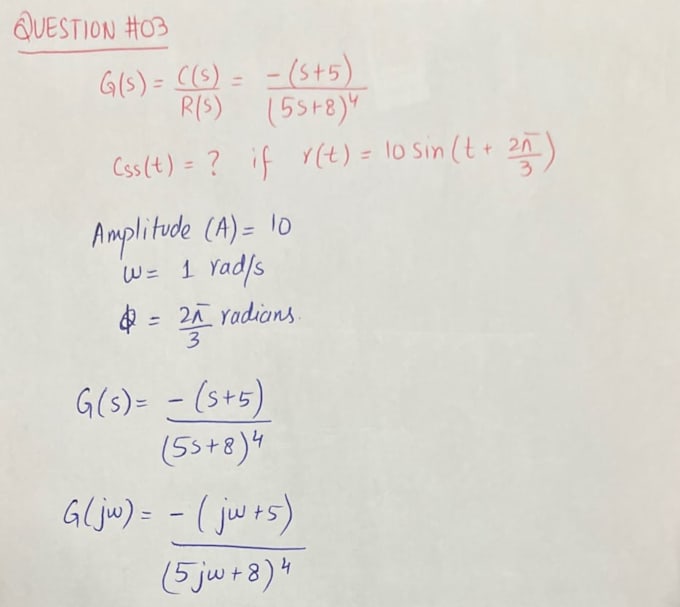 QUESTION #03
G(s) = C(s)/R(s) = -(s+5)/(5s+8)^4
Css(t) = ? if r(t) = 10 sin(t + 2π/3)
Amplitude (A) = 10
ω = 1 rad/s
ϕ = 2π/3 radians.
G(s) = -(s+5)/(5s+8)^4
G(jω) = -(jω+5)/(5jω+8)^4